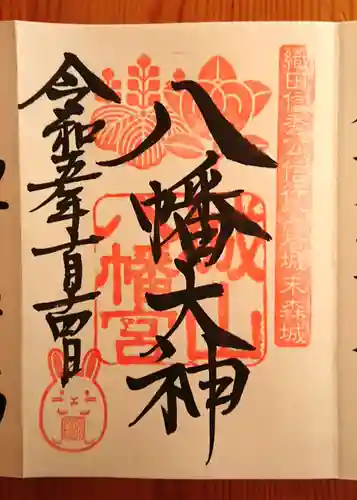 織田信秀公信行公居城末森城
八幡大神
城山
八幡宮
令和五年十一月十四日